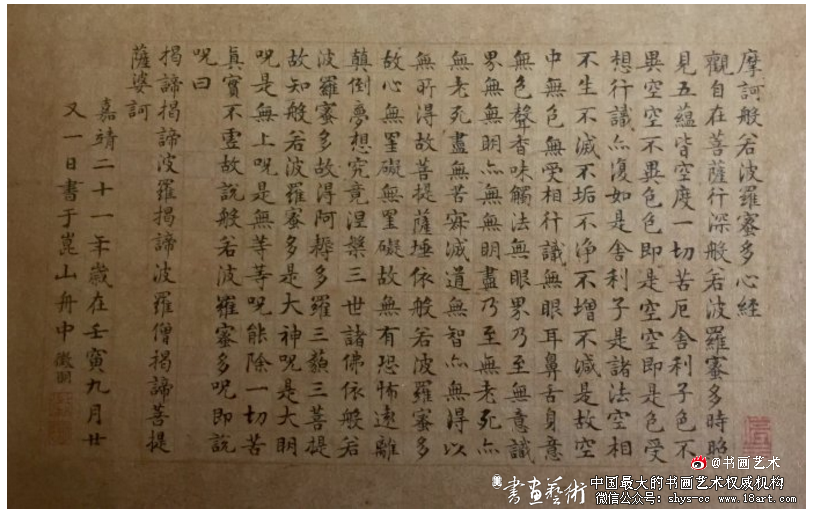 摩訶般若波羅蜜多心經
觀自在菩薩行深般若波羅蜜多時照
見五蘊皆空度一切苦厄舍利子色不
異空空不異色色即是空空即是色受
想行識亦復如是舍利子是諸法空相
不生不滅不垢不淨不增不減是故空
中無色無受想行識無眼耳鼻舌身意
無色聲香味觸法無眼界乃至無意識
界無無明亦無無明盡乃至無老死亦
無老死盡無苦寂滅道無智亦無得以
無所得故菩提薩埵依般若波羅蜜多
故心無罣礙無罣礙故無有恐怖遠離
顛倒夢想究竟涅槃三世諸佛依般若
波羅蜜多故得阿耨多羅三藐三菩提
故知般若波羅蜜多是大神呪是大明
呪是無上呪是無等等呪能除一切苦
真實不虛故說般若波羅蜜多呪即說
呪曰
揭諦揭諦波羅揭諦波羅僧揭諦菩提
薩婆訶
嘉靖二十一年歲在壬寅九月廿
又一日書于崑山舟中徵明
@书画艺术
書畫藝術
中国最大的书画艺术权威机构
微信公众号：shys-cc www.18art.com